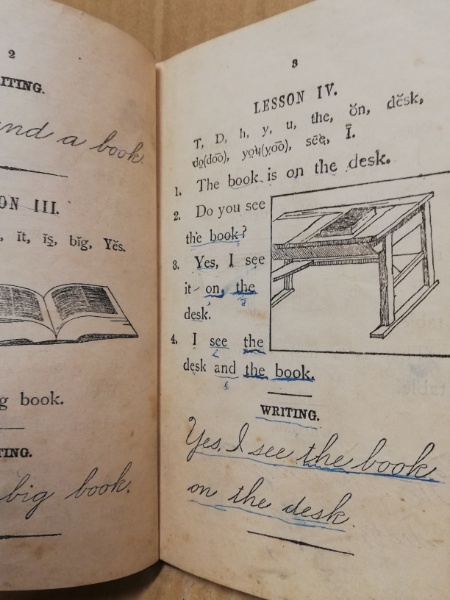 2
ITING.
and a book
ON III.
, ĭt, ĭs̱, bĭg, Yĕs.
g book.
TING.
big book.
3
LESSON IV.
T, D, h, y, u, the, ŏn, dĕsk,
do̤(do͞o), yo̤u(yo͞o), sēe, Ī.
1. The book is on the desk.
2. Do you see
the book?
3. Yes, I see
it on the
desk.
4. I see the
desk and the book.
WRITING.
Yes, I see the book
on the desk.